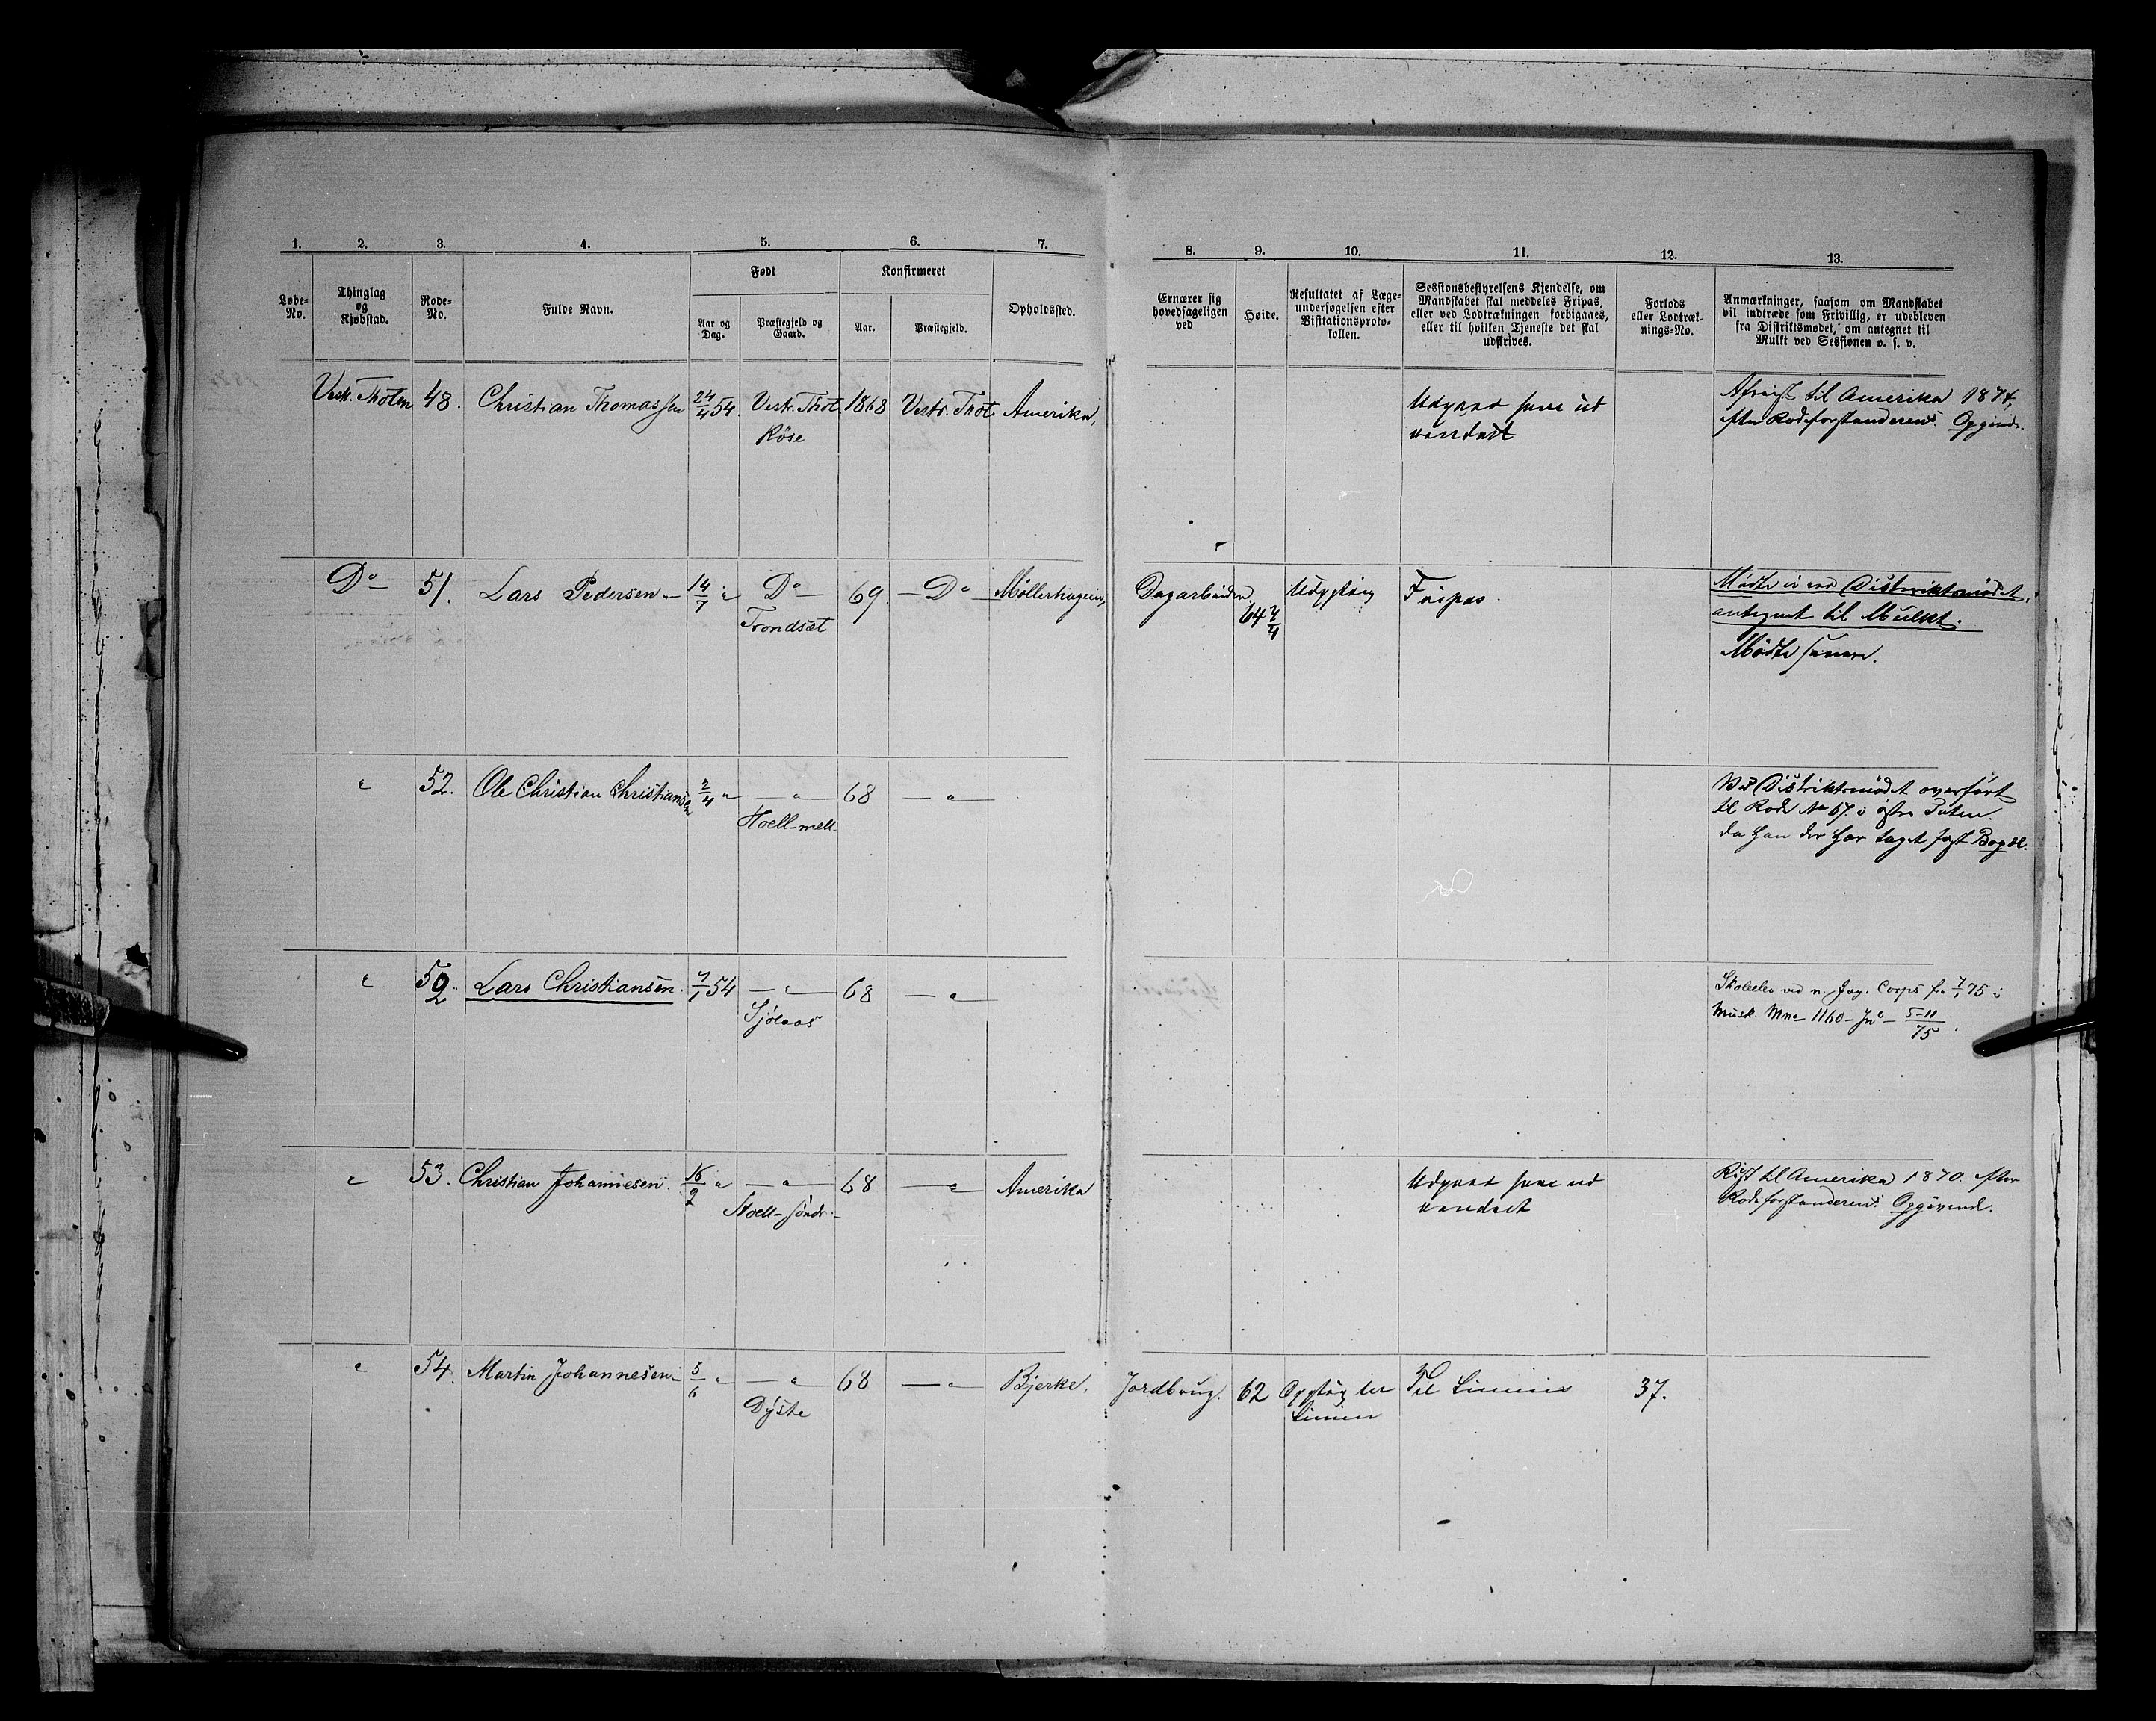 1. 2. 3. 4. 5. 6. 7. 8. 9. 10. 11. 12. 13.
Løbe-No.
Thinglag og Kjøbstad.
Rode-No.
Fulde Navn.
Født
Aar og Dag.
Præstegjeld og Gaard.
Konfirmeret
Aar.
Præstegjeld.
Opholdssted.
Ernærer sig hovedsageligen ved
Høide.
Resultatet af Læge-undersøgelsen efter Visitationsproto-kollen.
Sessionsbestyrelsens Kjendelse, om Mandskabet skal meddeles Fripas, eller ved Lodtrækningen forbigaaes, eller til hvilken Tjeneste det skal udskrives.
Forlods eller Lodtræk-nings-No.
Anmærkninger, saasom om Mandskabet vil indtræde som Frivillig, er udebleven fra Distriktsmødet, om antegnet til Mulkt ved Sessionen o. s. v.
Vestr. Thoten 48. Christian Thomassen 24/4 54. Vestr. Thot. 1868 Vestr. Thot. Amerika, Udgaar som ud Afreist til Amerika 1874,
Röse vandret efter Rodeforstanderens Opgivde.
Do 51. Lars Pedersen 14/7 " Do 69. Do Møllerhagen, Dagarbeider. 64 Udygtig Fripas. Mødte ei ved Distriktsmødet,
Trondsæt antegnet til Mulkt.
Mødte senere.
" 52. Ole Christian Christiansen 2/4 " — " — 68 — " — Ved Distriktsmødet overført
Hoell-mell. til Rode No 67. i østre Toten.
da han der har taget fast Bopæl.
" 52. Lars Christiansen. 7/1 54 — " — 68 — " — Skoleelev ved n. Jæg. Corps fra 7/1 75 i
Sjølaas Musk. Mno 1160 - Jno 5-11/75.
" 53. Christian Johannesen. 16/2 " — " — 68 — " — Amerika Udgaar som ud Reist til Amerika 1870. efter
Hoell-søndr. vandret Rodeforstanderens Opgivende.
" 54. Martin Johannesen 5/6 " — " — 68 — " — Bjerke. Jordbrug. 62 Dygtig til Til Linien 37.
Dyste Linien